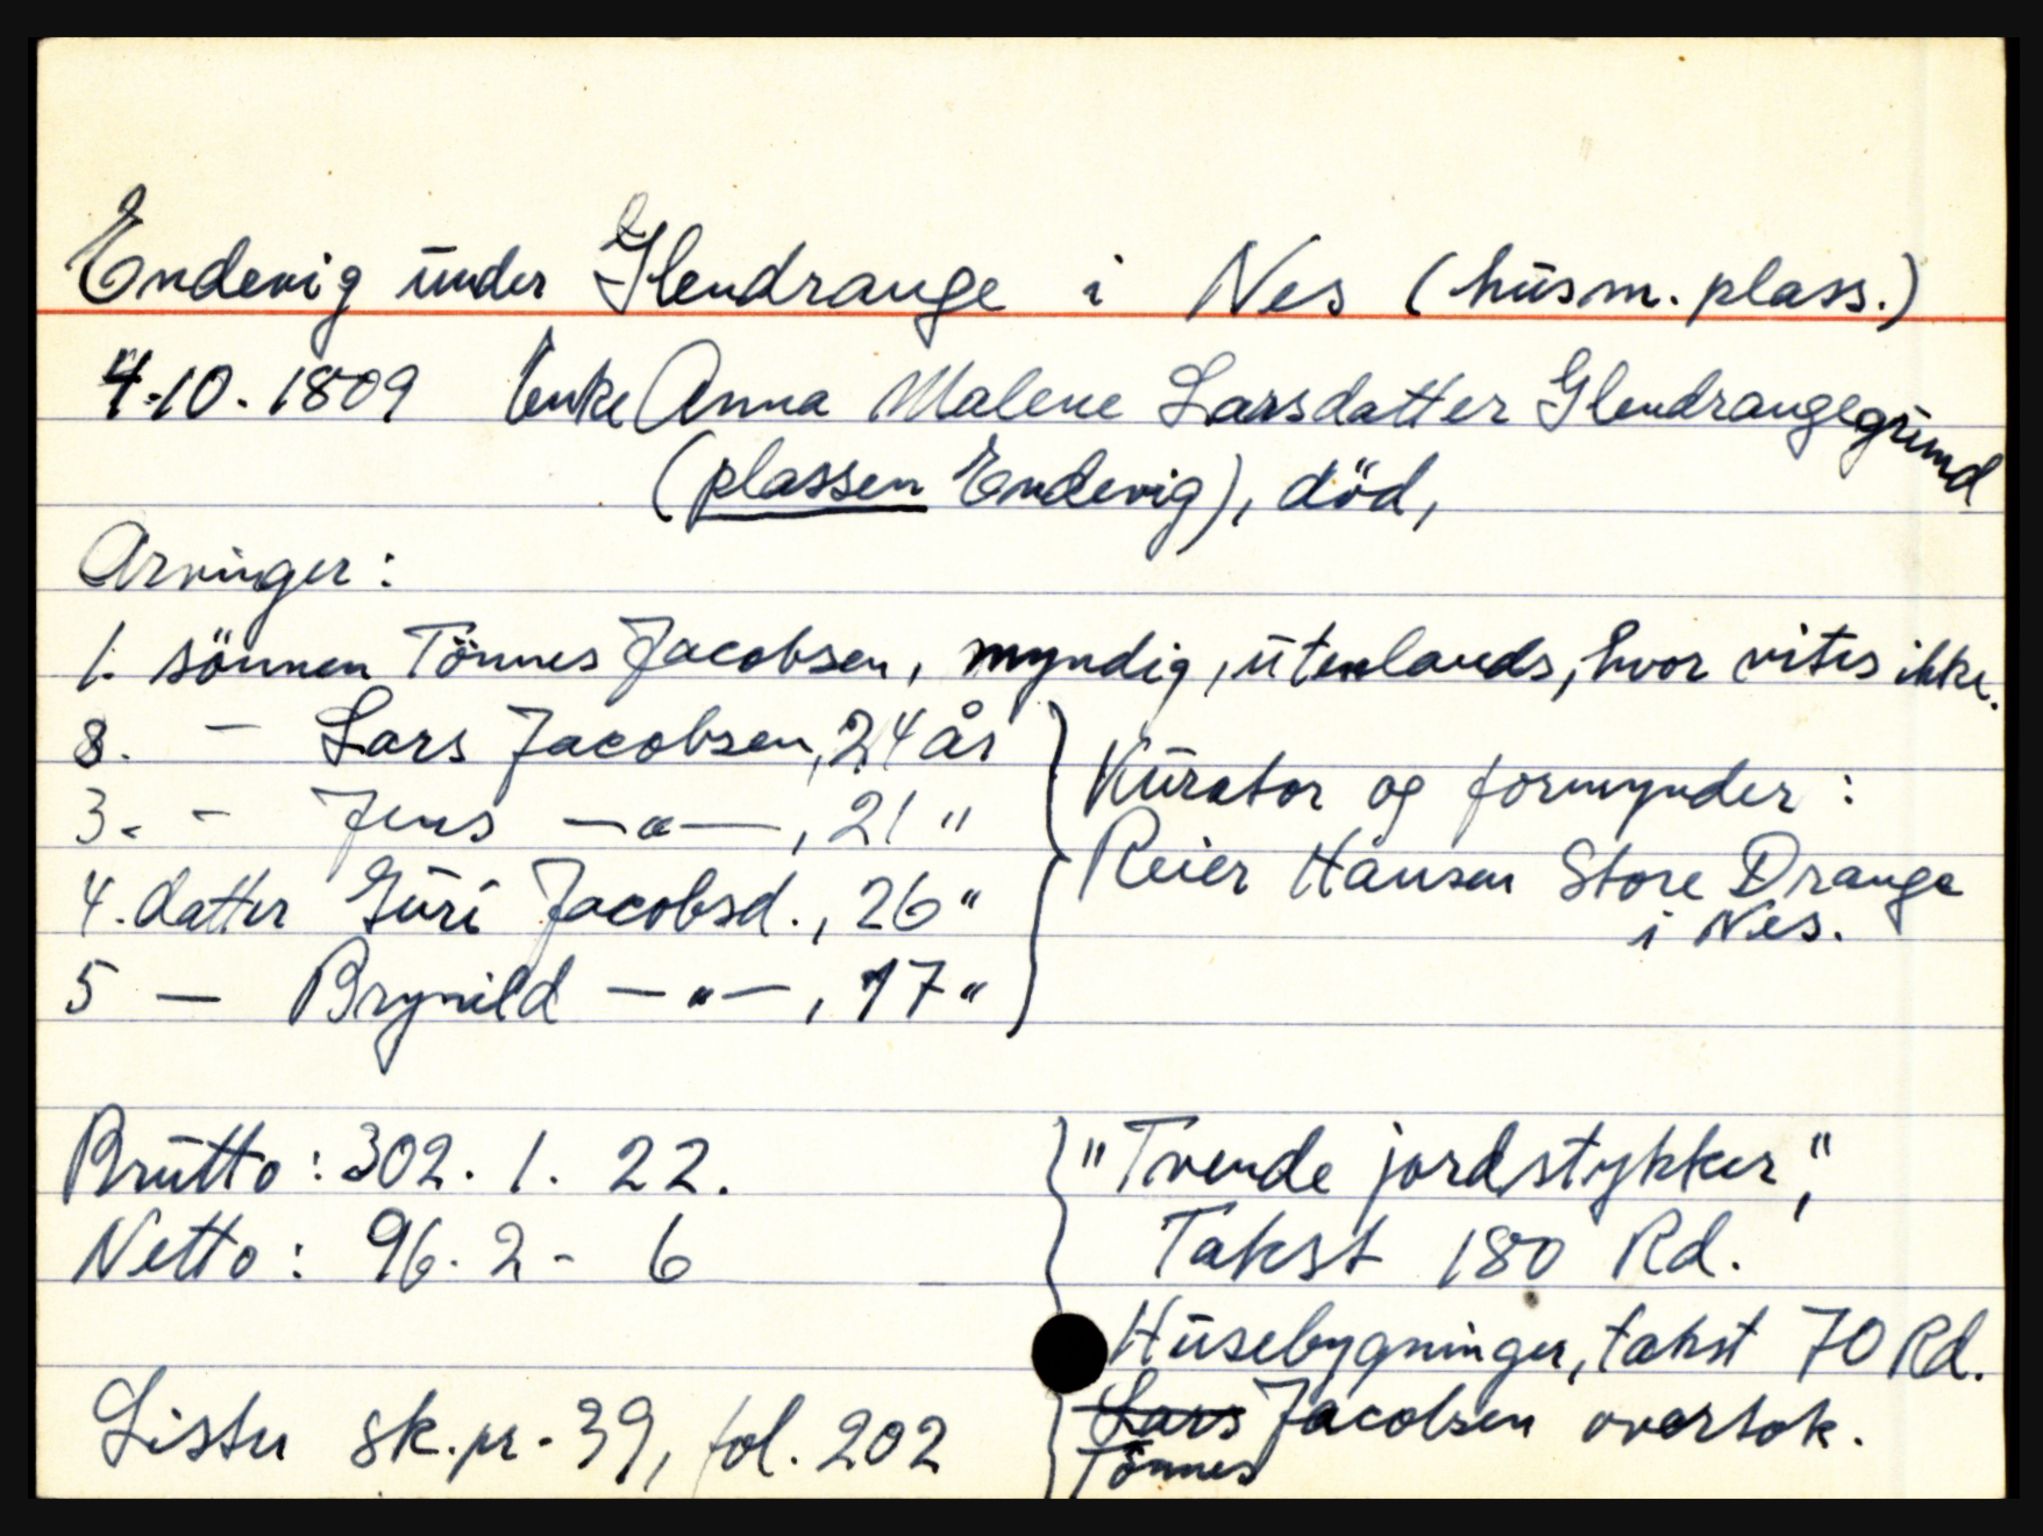 Endevig under Glendrange i Nes (husm. plass.)
4.10.1809 Enke Anna Malene Larsdatter Glendrangegrund
(plassen Endevig), död,
Arvinger:
1. sönnen Tönnes Jacobsen, myndig, utenlands, hvor vites ikke.
2. — Lars Jacobsen, 24 år
3. - Jens —"—, 21 "
4. datter Guri Jacobsd., 26 "
5 — Brynild —"—, 17 "
Kurator og formynder:
Reier Hansen Store Drange
i Nes.
Brutto: 302. 1. 22.
Netto: 96. 2 - 6
"Tvende jordstykker",
Takst 180 Rd.
Husebygninger, takst 70 Rd.
Lars Jacobsen overtok.
Tönnes
Lister sk.pr. 39, fol. 202